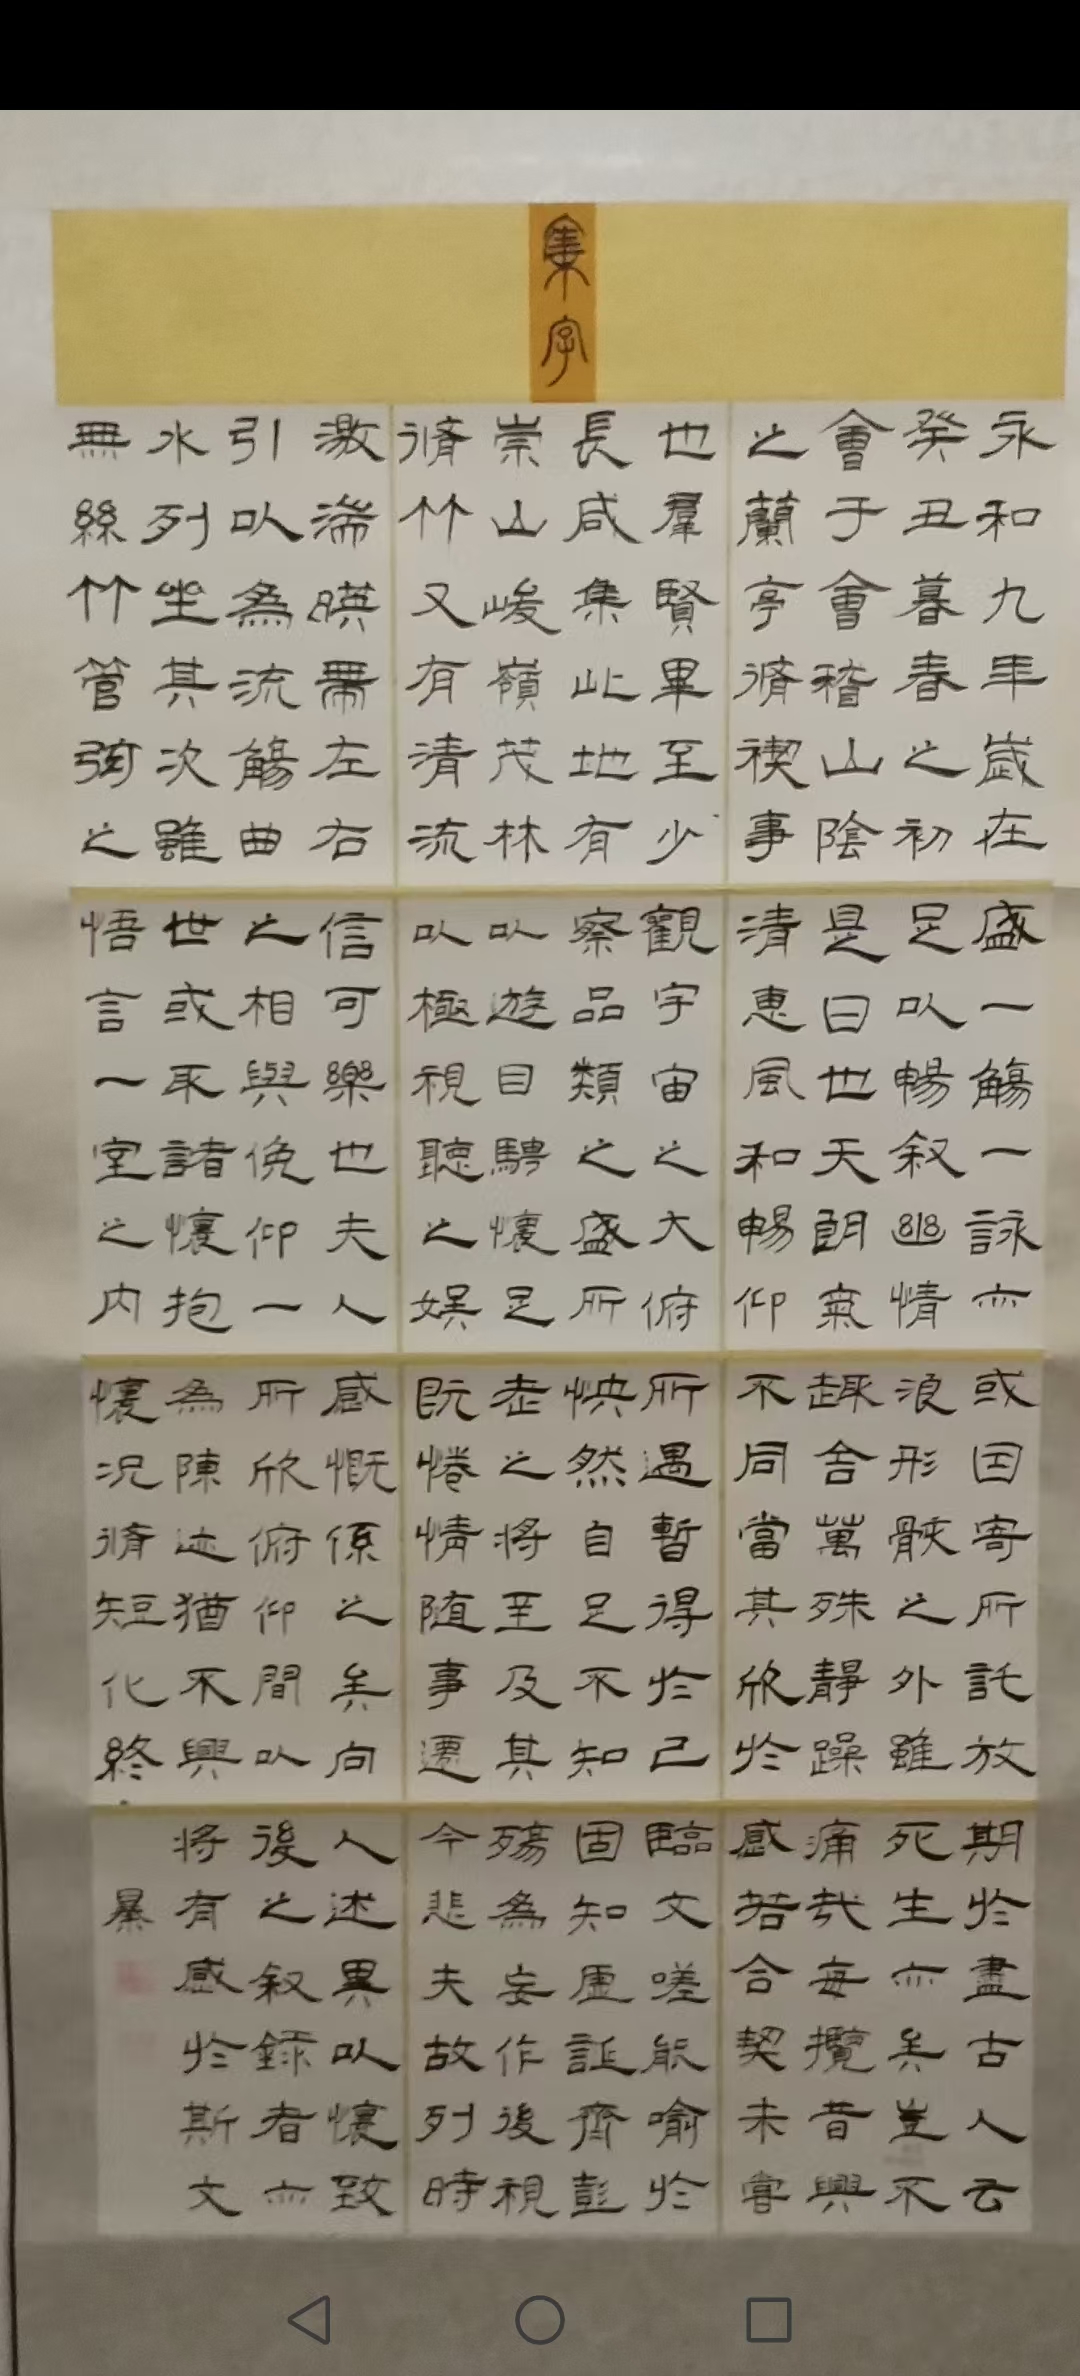 集字
永和九年歲在
癸丑暮春之初
會于會稽山陰
之蘭亭脩禊事
也羣賢畢至少
長咸集此地有
崇山峻嶺茂林
脩竹又有清流
激湍暎帶左右
引以為流觴曲
水列坐其次雖
無絲竹管弦之
盛一觴一詠亦
足以暢叙幽情
是日也天朗氣
清惠風和暢仰
觀宇宙之大俯
察品類之盛所
以遊目騁懷足
以極視聽之娛
信可樂也夫人
之相與俛仰一
世或取諸懷抱
悟言一室之內
或因寄所託放
浪形骸之外雖
趣舍萬殊靜躁
不同當其欣於
所遇暫得於己
怏然自足不知
老之將至及其
既惓情随事遷
感慨係之矣向
所欣俯仰間以
為陳迹猶不興
懷況脩短化終
期於盡古人云
死生亦矣豈不
痛哉每攬昔興
感若合契未嘗
臨文嗟能喻於
固知虛誕齊彭
殤為妄作後視
今悲夫故列時
人述異以懷致
後之叙錄者亦
將有感於斯文